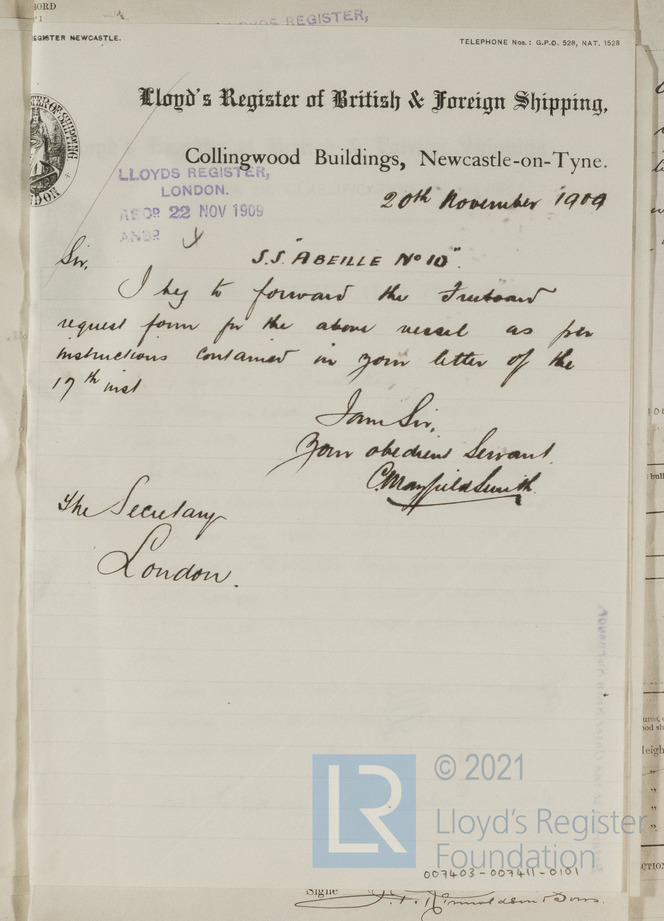 LLOYDS REGISTER,
REGISTER NEWCASTLE.
TELEPHONE Nos.: G.P.O. 528, NAT. 1528
Lloyd's Register of British & Foreign Shipping,
Collingwood Buildings, Newcastle-on-Tyne.
LLOYDS REGISTER,
LONDON.
22 NOV 1909
20th November 1909
Sir,
S.S. "ABEILLE No 10".
I beg to forward the Freeboard
request form for the above vessel as per
instructions contained in your letter of the
17th inst
I am Sir,
Your obedient Servant.
C. Mayfield Smith.
The Secretary
London.
LR
© 2021
Lloyd's Register
Foundation
007403-007411-0101